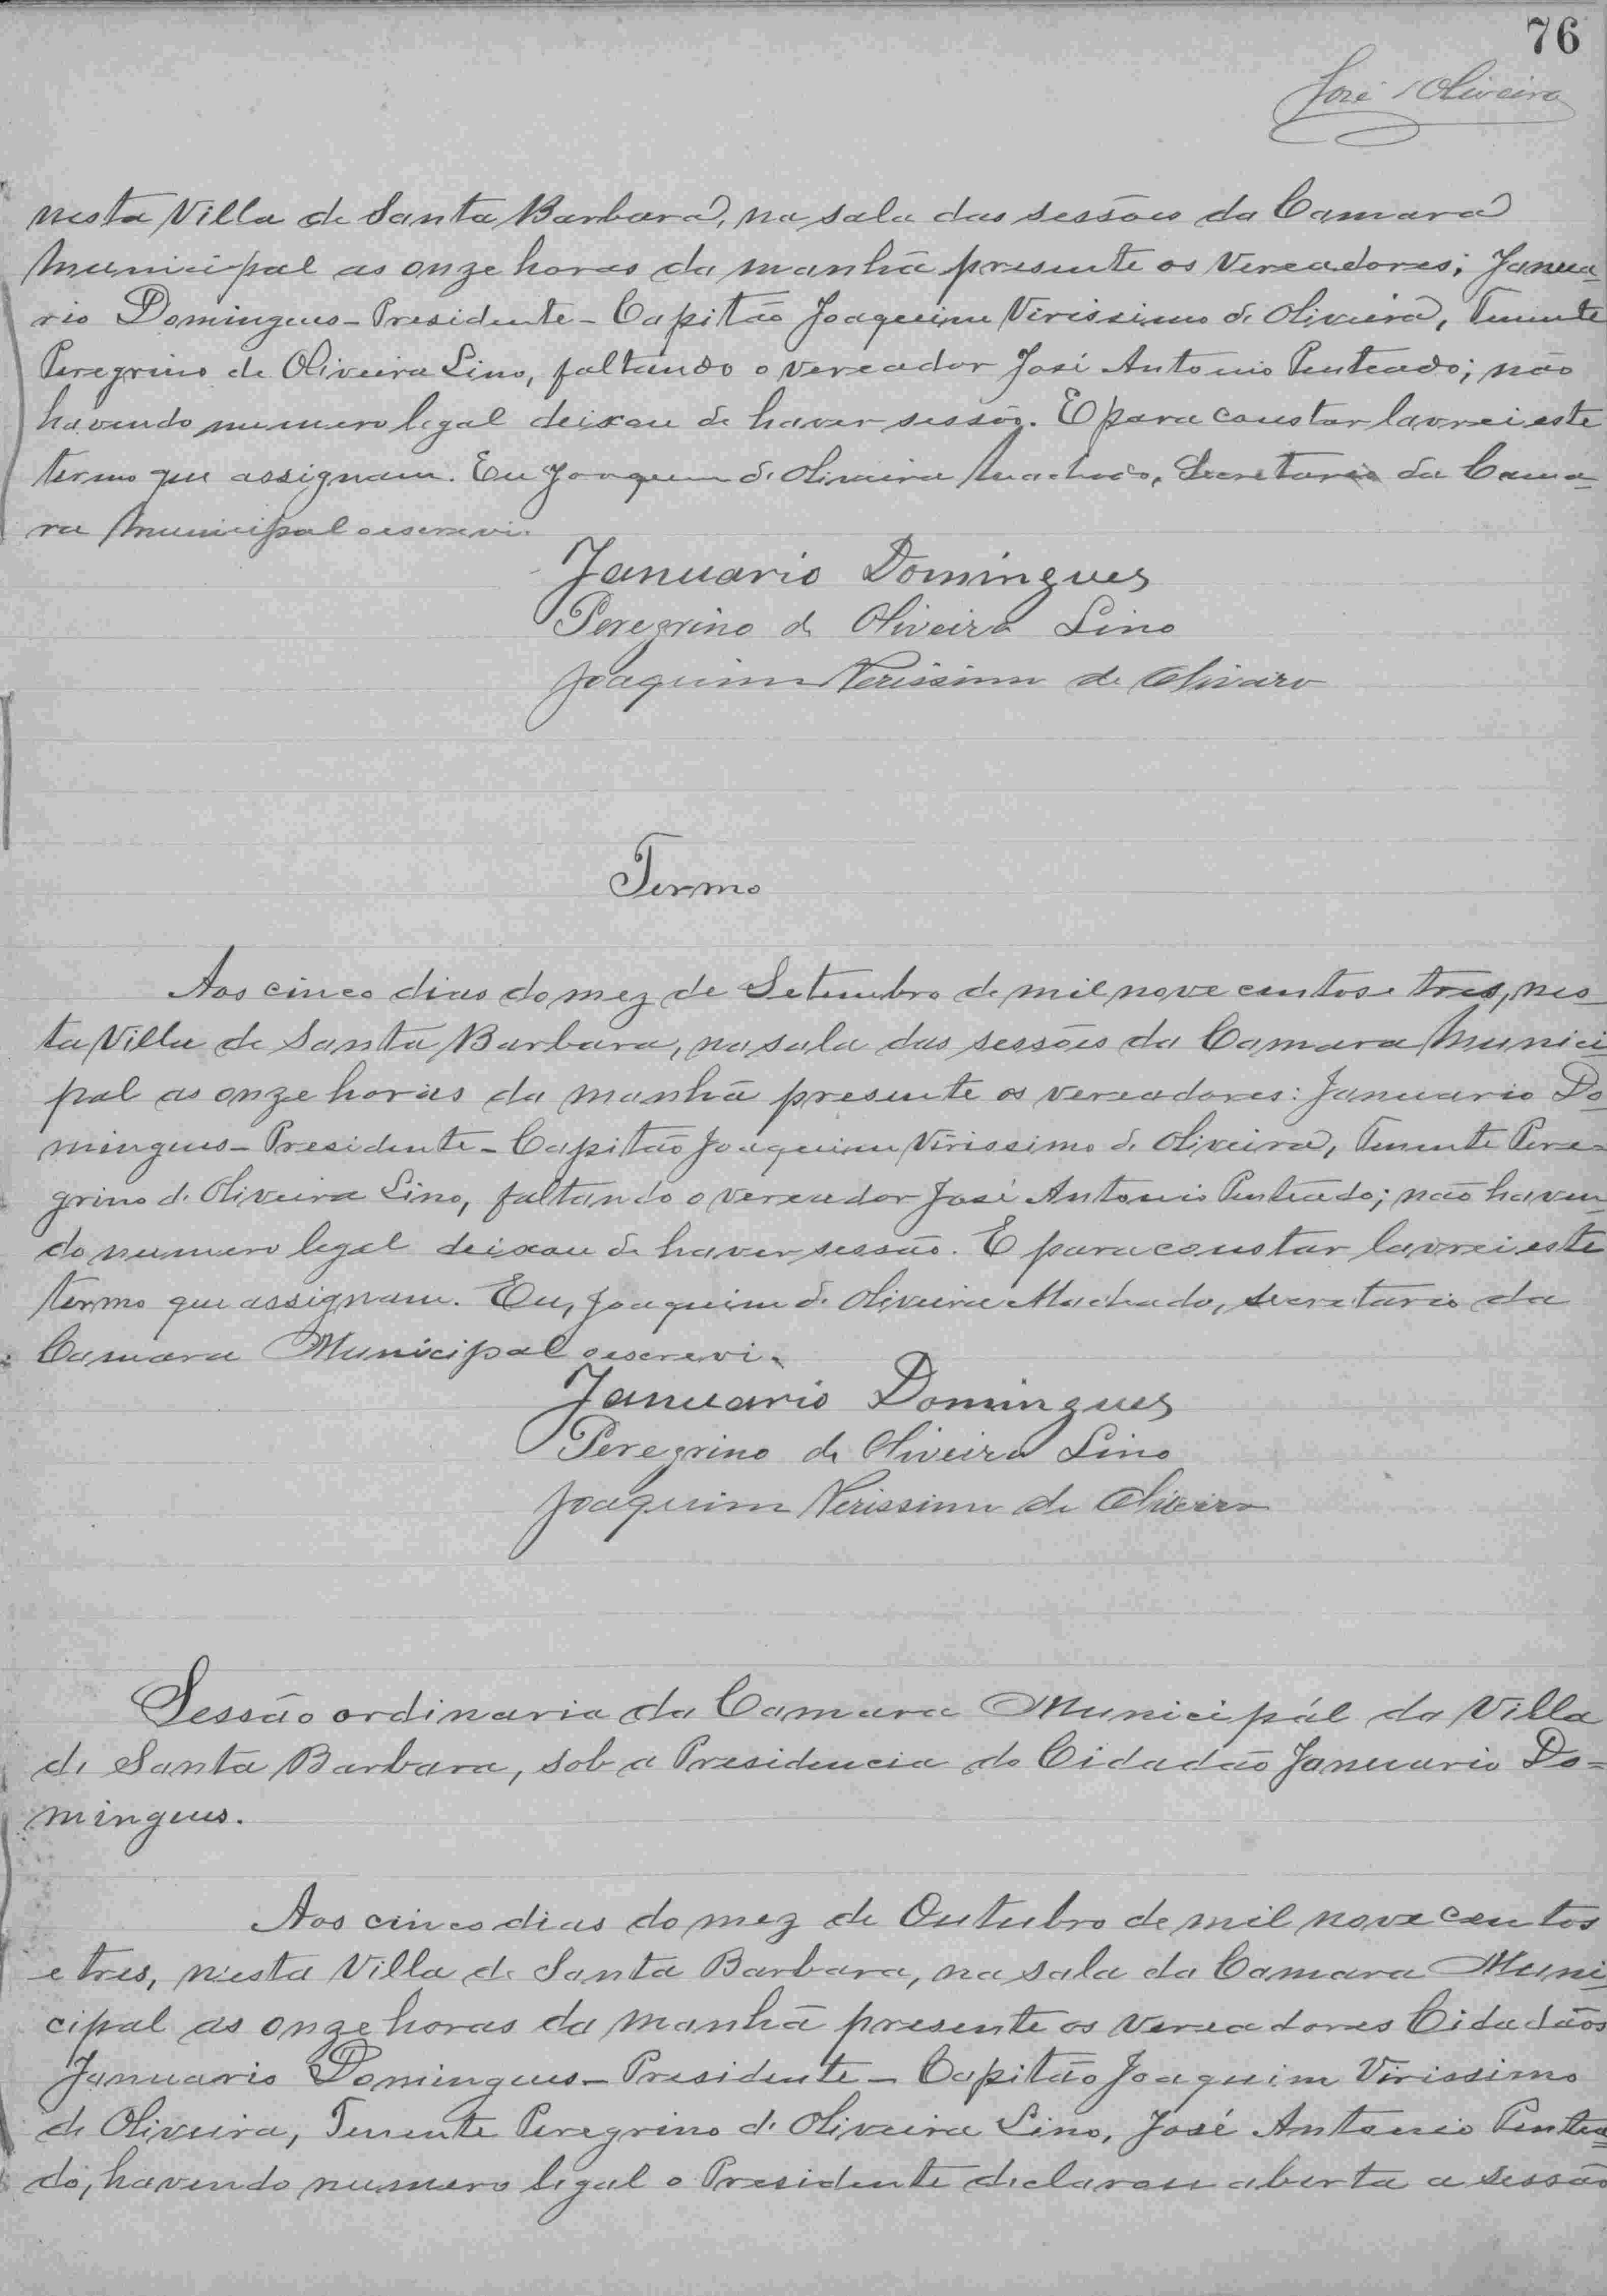 76
José Oliveira
nesta Villa de Santa Barbara, na sala das sessões da Camara
Municipal as onze horas da manhã presente os Vereadores; Janua-
rio Domingues - Presidente - Capitão Joaquim Virissimo de Oliveira, Tenente
Peregrino de Oliveira Lino, faltando o vereador José Antonio Penteado; não
havendo numero legal deixou de haver sessão. E para constar lavrei este
termo que assignam. Eu Joaquim de Oliveira Machado, Secretario da Cama-
ra Municipal o escrevi.
Januario Domingues
Peregrino de Oliveira Lino
Joaquim Verissimo de Oliveira
Termo
Aos cinco dias do mez de Setembro de mil nove centos e tres, nes-
ta Villa de Santa Barbara, na sala das sessões da Camara Munici-
pal as onze horas da manhã presente os vereadores: Januario Do-
mingues - Presidente - Capitão Joaquim Virissimo de Oliveira, Tenente Pere-
grino de Oliveira Lino, faltando o vereador José Antonio Penteado; não haven-
do numero legal deixou de haver sessão. E para constar lavrei este
termo que assignam. Eu, Joaquim de Oliveira Machado, secretario da
Camara Municipal o escrevi.
Januario Domingues
Peregrino de Oliveira Lino
Joaquim Verissimo de Oliveira
Sessão ordinaria da Camara Municipál da Villa
de Santa Barbara, sob a Presidencia do Cidadão Januario Do=
mingues.
Aos cinco dias do mez de Outubro de mil nove centos
e tres, n'esta Villa de Santa Barbara, na sala da Camara Muni-
cipal as onze horas da manhã presente os vereadores Cidadãos
Januario Domingues - Presidente - Capitão Joaquim Virissimo
de Oliveira, Tenente Peregrino de Oliveira Lino, José Antonio Pentea-
do, havendo numero legal o Presidente declarou aberta a sessão